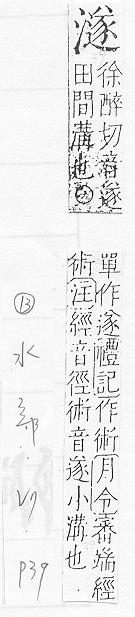 澻
徐醉切音遂
田間溝也
單作遂禮記作術月令審端經
術注經音徑術音遂小溝也
⑬水部
P39